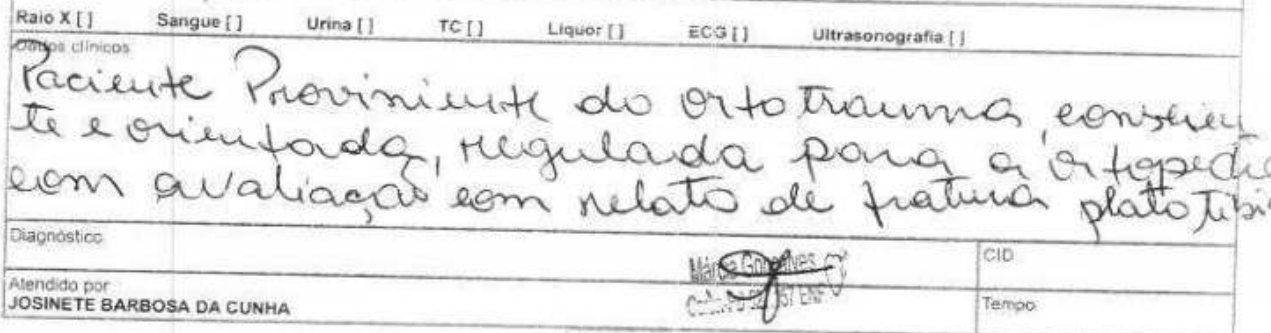 Raio X [ ] Sangue [ ] Urina [ ] TC [ ] Liquor [ ] ECG [ ] Ultrasonografia [ ]
Dados clínicos
Paciente Proviniente do ortotrauma, conscien
te e orientada, regulada para a ortopedia
com avaliação com relato de fratura plato tibi
Diagnóstico
CID
Márcia Gonçalves
Atendido por
JOSINETE BARBOSA DA CUNHA
Tempo